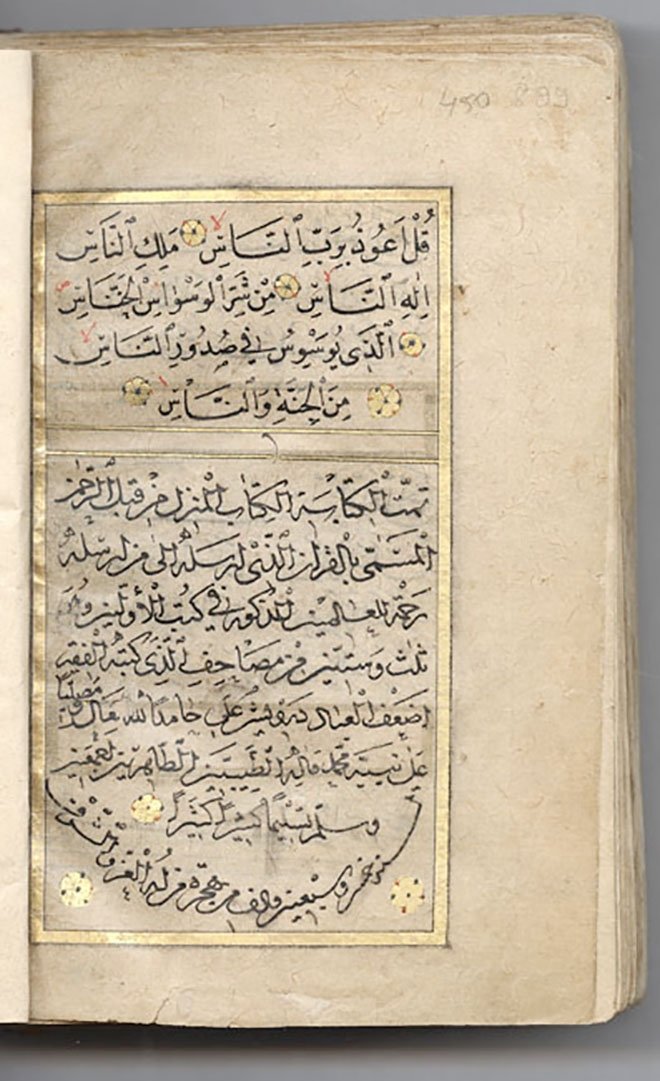 450 899
قُلْ اَعُوذُ بِرَبِّ النَّاسِ مَلِكِ النَّاسِ
اِلٰهِ النَّاسِ مِنْ شَرِّ الْوَسْوَاسِ الْخَنَّاسِ
اَلَّذِى يُوَسْوِسُ فِى صُدُورِ النَّاسِ
مِنَ الْجِنَّةِ وَالنَّاسِ
تمت الكتابة الكتاب المنزل من قبل الرحمن
المسمى بالقران الذى ارسله الى من ارسله
رحمة للعالمين المذكور فى كتب الأولين وهو
ثلث وستين من مصاحف الذى كتبه الفقير
اضعف العباد درويش على حامدا لله تعالى و مصليا
على نبيه محمد واله الطيبين الطاهرين اجمعين
وسلم تسليما كثيرا كثيرا
سنه خمس وسبعين والف من هجرة من له العز والشرف